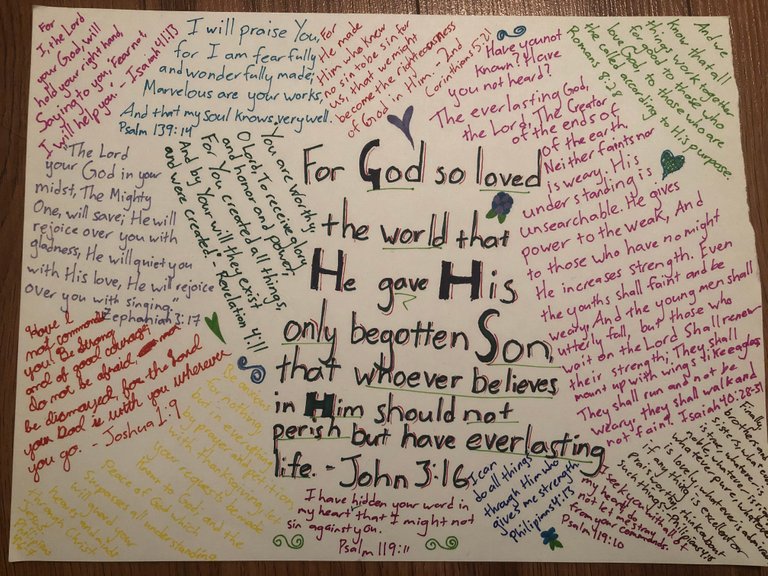 For
I, the Lord
your God, will
hold your right hand,
Saying to you, "Fear not,
I will help you." - Isaiah 41:13
I will praise You,
for I am fearfully
and wonderfully made;
Marvelous are your works,
And that my soul knows very well.
Psalm 139:14
For
He made
Him who knew
no sin to be sin for
us, that we might
become the righteousness
of God in Him. - 2nd
Corinthians 5:21
Have you not
known? Have
you not heard?
The everlasting God,
the Lord, The Creator
of the ends of
of the earth,
Neither faints nor
is weary. His
understanding is
unsearchable. He gives
power to the weak, And
to those who have no might
He increases strength. Even
the youths shall faint and be
weary, And the young men shall
utterly fall, but those who
wait on the Lord Shall renew
their strength; They shall
mount up with wings like eagles
They shall run and not be
weary, they shall walk and
not faint. Isaiah 40:28-31
And we
know that all
things work together
for good to those who
love God, to those who are
the called according to His purpose.
Romans 8:28
The Lord
your God in your
midst, The Mighty
One, will save; He will
rejoice over you with
gladness, He will quiet you
with His love, He will rejoice
over you with singing."
Zephaniah 3:17
You are worthy,
O Lord, To receive glory
and honor and power;
For You created all things,
And by Your will they exist
and were created." Revelation 4:11
For God so loved
the world that
He gave His
only begotten Son,
that whoever believes
in Him should not
perish but have everlasting
life. - John 3:16
Have I
not commanded
you? Be strong
and of good courage;
do not be afraid nor
be dismayed, for the Lord
your God is with you wherever
you go. - Joshua 1:9
Be anxious
for nothing,
but in everything
by prayer and petition,
with thanksgiving, let
your requests be made
known to God, and the
Peace of God which
surpasses all understanding
will guard your
hearts and minds
through Christ
Jesus
I have hidden your word in
my heart that I might not
sin against you.
Psalm 119:11
I can
do all things
through Him who
gives me strength
Philipians 4:13
I seek you with all of
my heart; do
not let me stray
from your commands.
Psalm 119:10
Finally,
brothers and
sisters, whatever
is true, whatever is
noble, whatever is right,
whatever is pure, whatever
is lovely, whatever is admirable
if anything is excellent or
Praiseworthy - think about
such things. Philipians 4:8